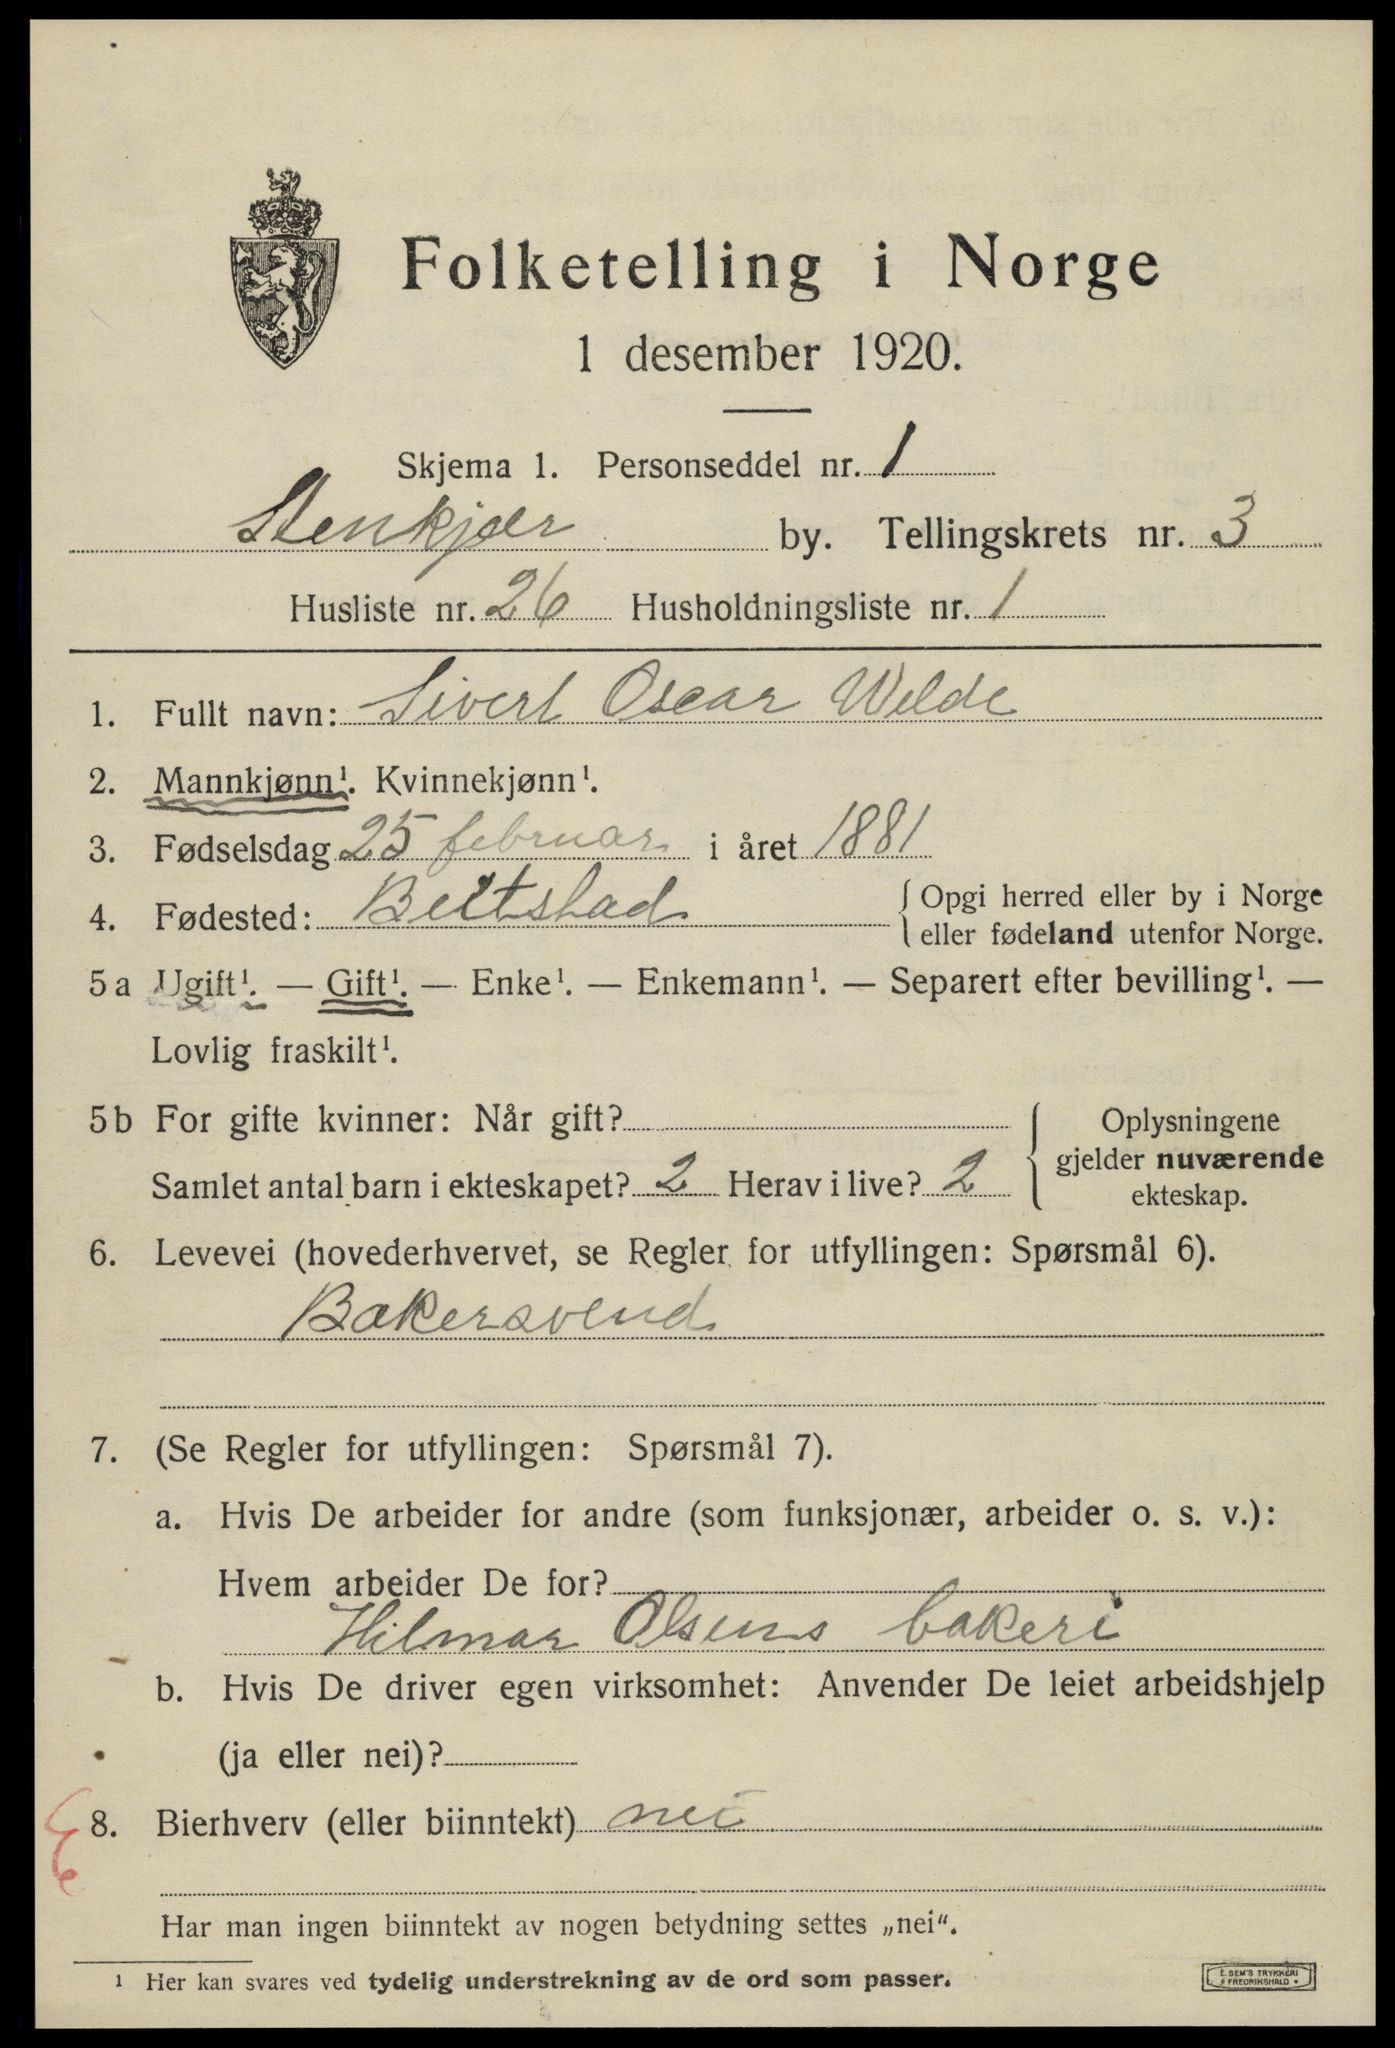 Folketelling i Norge
1 desember 1920.
Skjema 1. Personseddel nr. 1
Stenkjær by. Tellingskrets nr. 3
Husliste nr. 26 Husholdningsliste nr. 1
1. Fullt navn: Sivert Oscar Welde
2. Mannkjønn¹. Kvinnekjønn¹.
3. Fødselsdag 25 februar i året 1881
4. Fødested: Beitstad { Opgi herred eller by i Norge
eller fødeland utenfor Norge.
5 a Ugift¹. — Gift¹. — Enke¹. — Enkemann¹. — Separert efter bevilling¹. —
Lovlig fraskilt¹.
5 b For gifte kvinner: Når gift?
Samlet antal barn i ekteskapet? 2 Herav i live? 2
Oplysningene
gjelder nuværende
ekteskap.
6. Levevei (hovederhvervet, se Regler for utfyllingen: Spørsmål 6).
Bakersvend
7. (Se Regler for utfyllingen: Spørsmål 7).
a. Hvis De arbeider for andre (som funksjonær, arbeider o. s. v.):
Hvem arbeider De for?
Hilmar Olsens bakeri
b. Hvis De driver egen virksomhet: Anvender De leiet arbeidshjelp
(ja eller nei)?
8. Bierhverv (eller biinntekt) nei
Har man ingen biinntekt av nogen betydning settes „nei“.
¹ Her kan svares ved tydelig understrekning av de ord som passer.
E. SEM'S TRYKKERI
FREDRIKSHALD